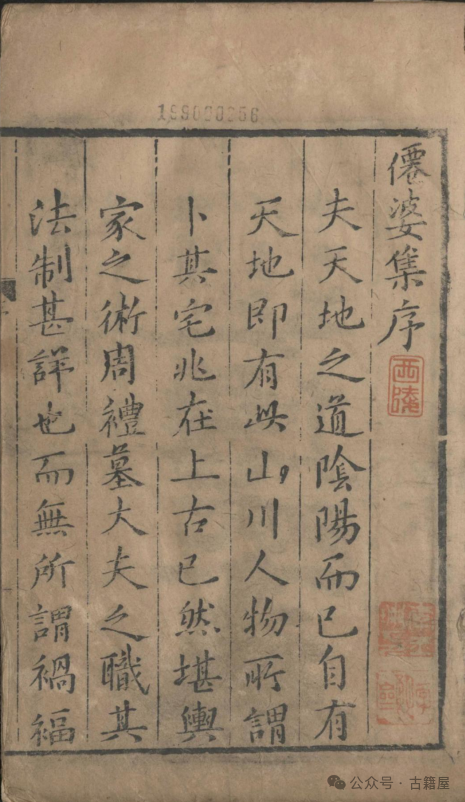 僊婆集序
夫天地之道陰陽而已自有
天地即有此山川人物所謂
卜其宅兆在上古已然堪輿
家之術周禮墓大夫之職其
法制甚詳也而無所謂禍福
西陵
公众号·古籍屋